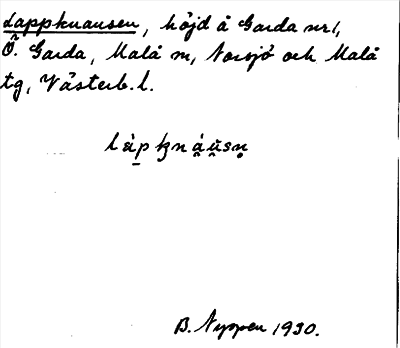 Lappknausen, höjd å Garda nr 1,
Ö. Garda, Malå sn, Norsjö och Malå
tg, Västerb. l.
B. Nyppen 1930.